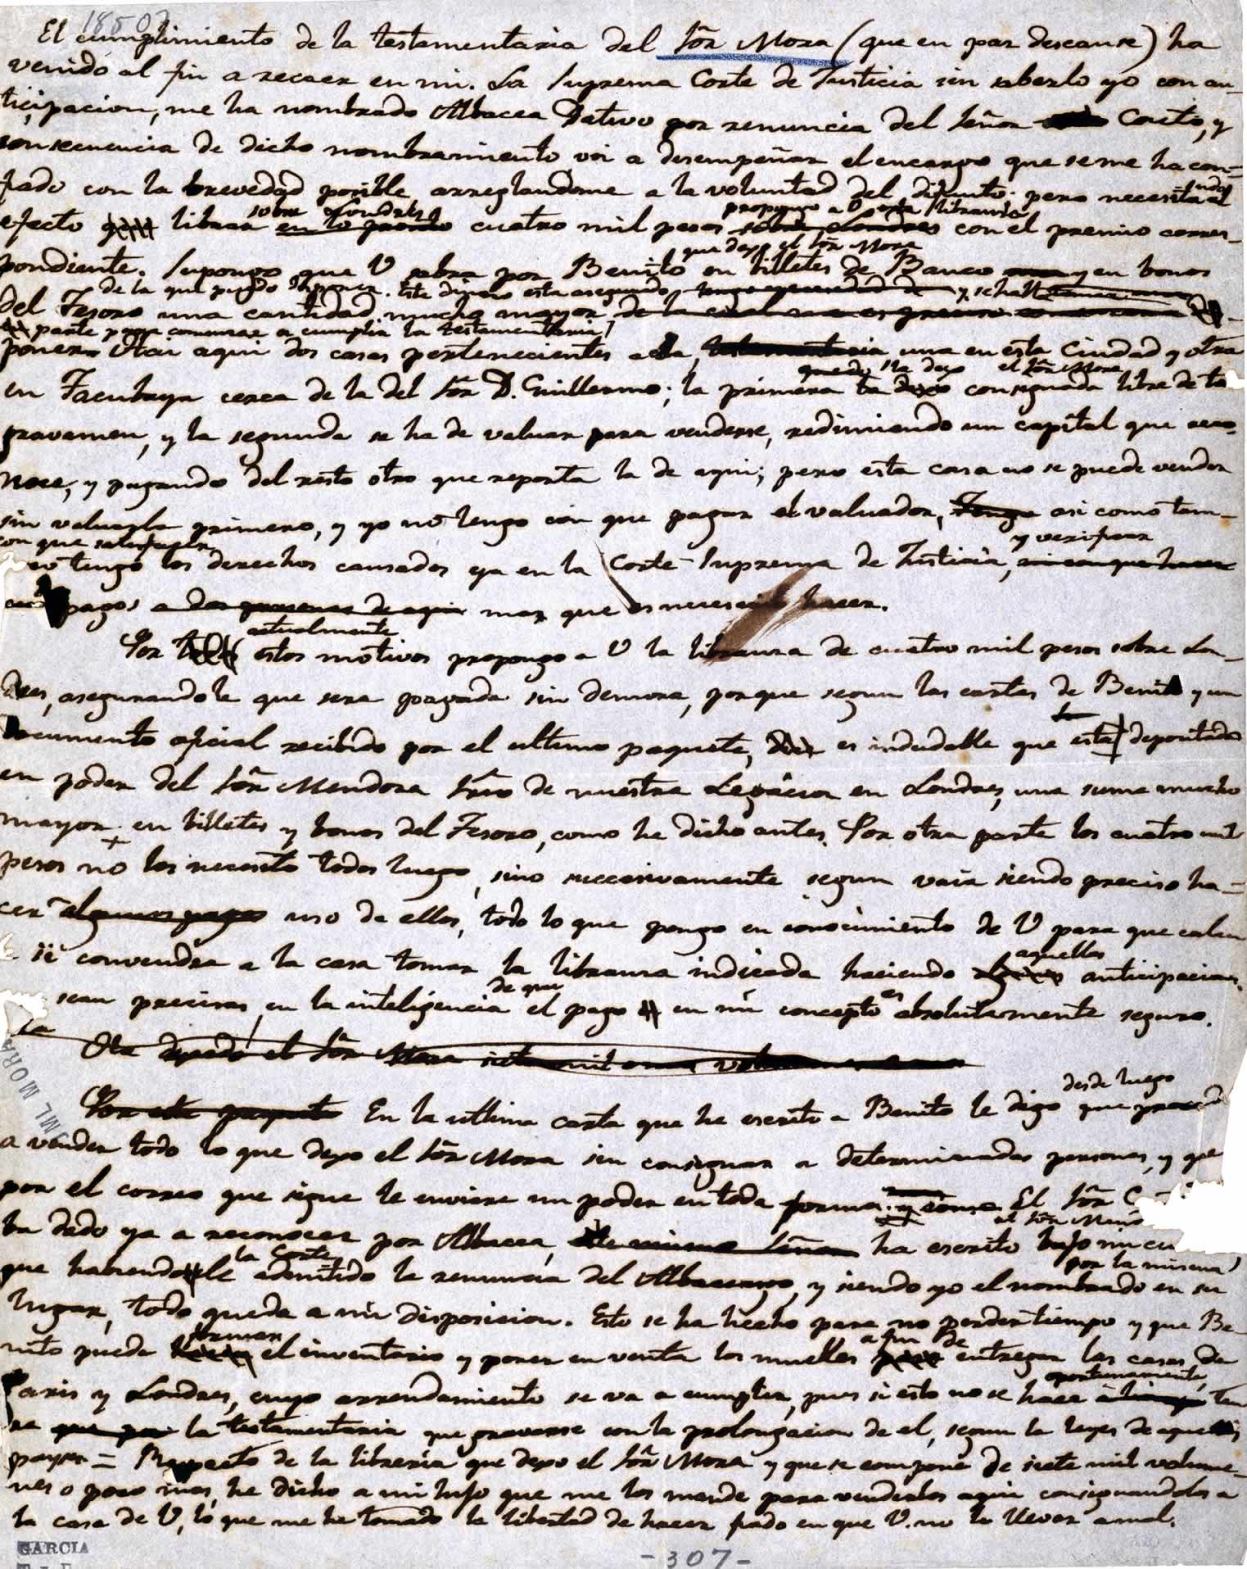 18507
El cumplimiento de la testamentaria del Sōr Mora (que en paz descanse) ha
venido al fin a recaer en mi. La Suprema Corte de Justicia sin saberlo yo con an-
ticipacion, me ha nombrado Albacea Dativo por renuncia del Señor Couto, y
consecuencia de dicho nombramiento voi a desempeñar el encargo que se me ha con-
fiado con la brevedad posible arreglandome a la voluntad del difunto; pero necesito al
sobre Londres propongo a V
efecto librar en lo pronto cuatro mil pesos sobre Londres con el premio corres-
que dejo el Sōr Mora
pondiente. Supongo que V sabra por Benito en billetes de Banco y en bonos
de la que puedo disponer. Este dinero esta asegurado, y se halla
del Tesoro una cantidad mucho mayor de la cual
parte para comenzar a cumplir la testamentaria
poner Otai aqui dos casas pertenecientes a ella, una en esta Ciudad y otra
el Sōr Mora
en Tacubaya cerca de la del Sōr D. Guillermo; la primera la dejo consignada libre de to
gravamen, y la segunda se ha de valuar para venderse, redimiendo un capital que reco-
noce, y pagando del resto otro que reporta la de aqui; pero esta casa no se puede vender
sin valuarla primero, y yo no tengo con que pagar el valuador, Tengo asi como tam-
con que satisfacer y verificar
tengo los derechos causados ya en la Corte Suprema de Justicia,
pagos mas que es necesario hacer.
actualmente
Por estos motivos propongo a V la libranza de cuatro mil pesos sobre Lon-
dres, asegurandole que sera pagada sin demora, porque segun las cartas de Benito y un
documento oficial recibido por el ultimo paquete, es indudable que esta depositada
en poder del Sōr Mendoza Srio de nuestra Legacion en Londres, una suma mucho
mayor en billetes y bonos del Tesoro, como he dicho antes. Por otra parte los cuatro mil
pesos no los necesito todos luego, sino succesivamente segun vaia siendo preciso ha-
cer algunos pagos uso de ellos, todo lo que pongo en conocimiento de V para que calcu
aquellas
si convendra a la casa tomar la libranza indicada haciendo anticipaciones
de que es
sean precisas, en la inteligencia el pago en mi concepto absolutamente seguro.
Ha dejado el Sōr Mora siete mil
desde luego
Por este paquete En la ultima carta que he escrito a Benito le digo que proceda
a vender todo lo que dejo el Sōr Mora sin consignar a determinadas personas, y que
por el correo que sigue le enviare un poder en toda forma. El Sōr
al Sōr
ha dado ya a reconocer por Albacea, ha escrito bajo mi
la Corte por la misma
que habiendole admitido la renuncia del Albaceazgo, y siendo yo el nombrado en su
lugar, todo queda a mi disposicion. Esto se ha hecho para no perder tiempo y que Be
formar a fin de
nito pueda el inventario y poner en venta los muebles entregar las casas de
oportunamente
Paris y Londres, cuyo arrendamiento se va a cumplir, pues si esto no se hace ten
que la testamentaria que gravarse con la prolongacion de el, segun la leyes de aquellos
payses = Respecto de la libreria que dejo el Sōr Mora y que se compone de siete mil volume-
nes o poco mas, he dicho a mi hijo que me los mande para venderlos aqui consignandolos a
la casa de V, lo que me he tomado la libertad de hacer fiado en que V. no lo llevara a mal.
GARCIA
-307-